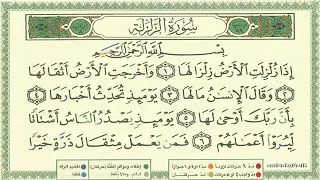 سُورَةُ الزَّلْزَلَةِ
بِسْمِ اللَّهِ الرَّحْمَٰنِ الرَّحِيمِ
إِذَا زُلْزِلَتِ الْأَرْضُ زِلْزَالَهَا ١ وَأَخْرَجَتِ الْأَرْضُ أَثْقَالَهَا
٢ وَقَالَ الْإِنسَانُ مَا لَهَا ٣ يَوْمَئِذٍ تُحَدِّثُ أَخْبَارَهَا ٤
بِأَنَّ رَبَّكَ أَوْحَىٰ لَهَا ٥ يَوْمَئِذٍ يَصْدُرُ النَّاسُ أَشْتَاتًا
لِّيُرَوْا أَعْمَالَهُمْ ٦ فَمَن يَعْمَلْ مِثْقَالَ ذَرَّةٍ خَيْرًا